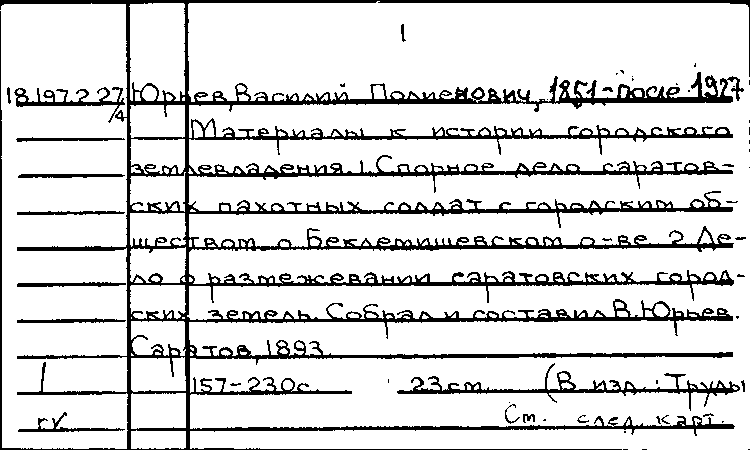 1
18.197.2.27/4 Юрьев, Василий Полиенович, 1851-после 1927
Материалы к истории городского
землевладения. 1. Спорное дело саратов-
ских пахотных солдат с городским об-
ществом о Беклемишевском о-ве 2 Де-
ло о размежевании саратовских город-
ских земель. Собрал и составил В. Юрьев.
Саратов, 1893.
157-230с. 23см. (В изд.: Труды
См. след. карт.